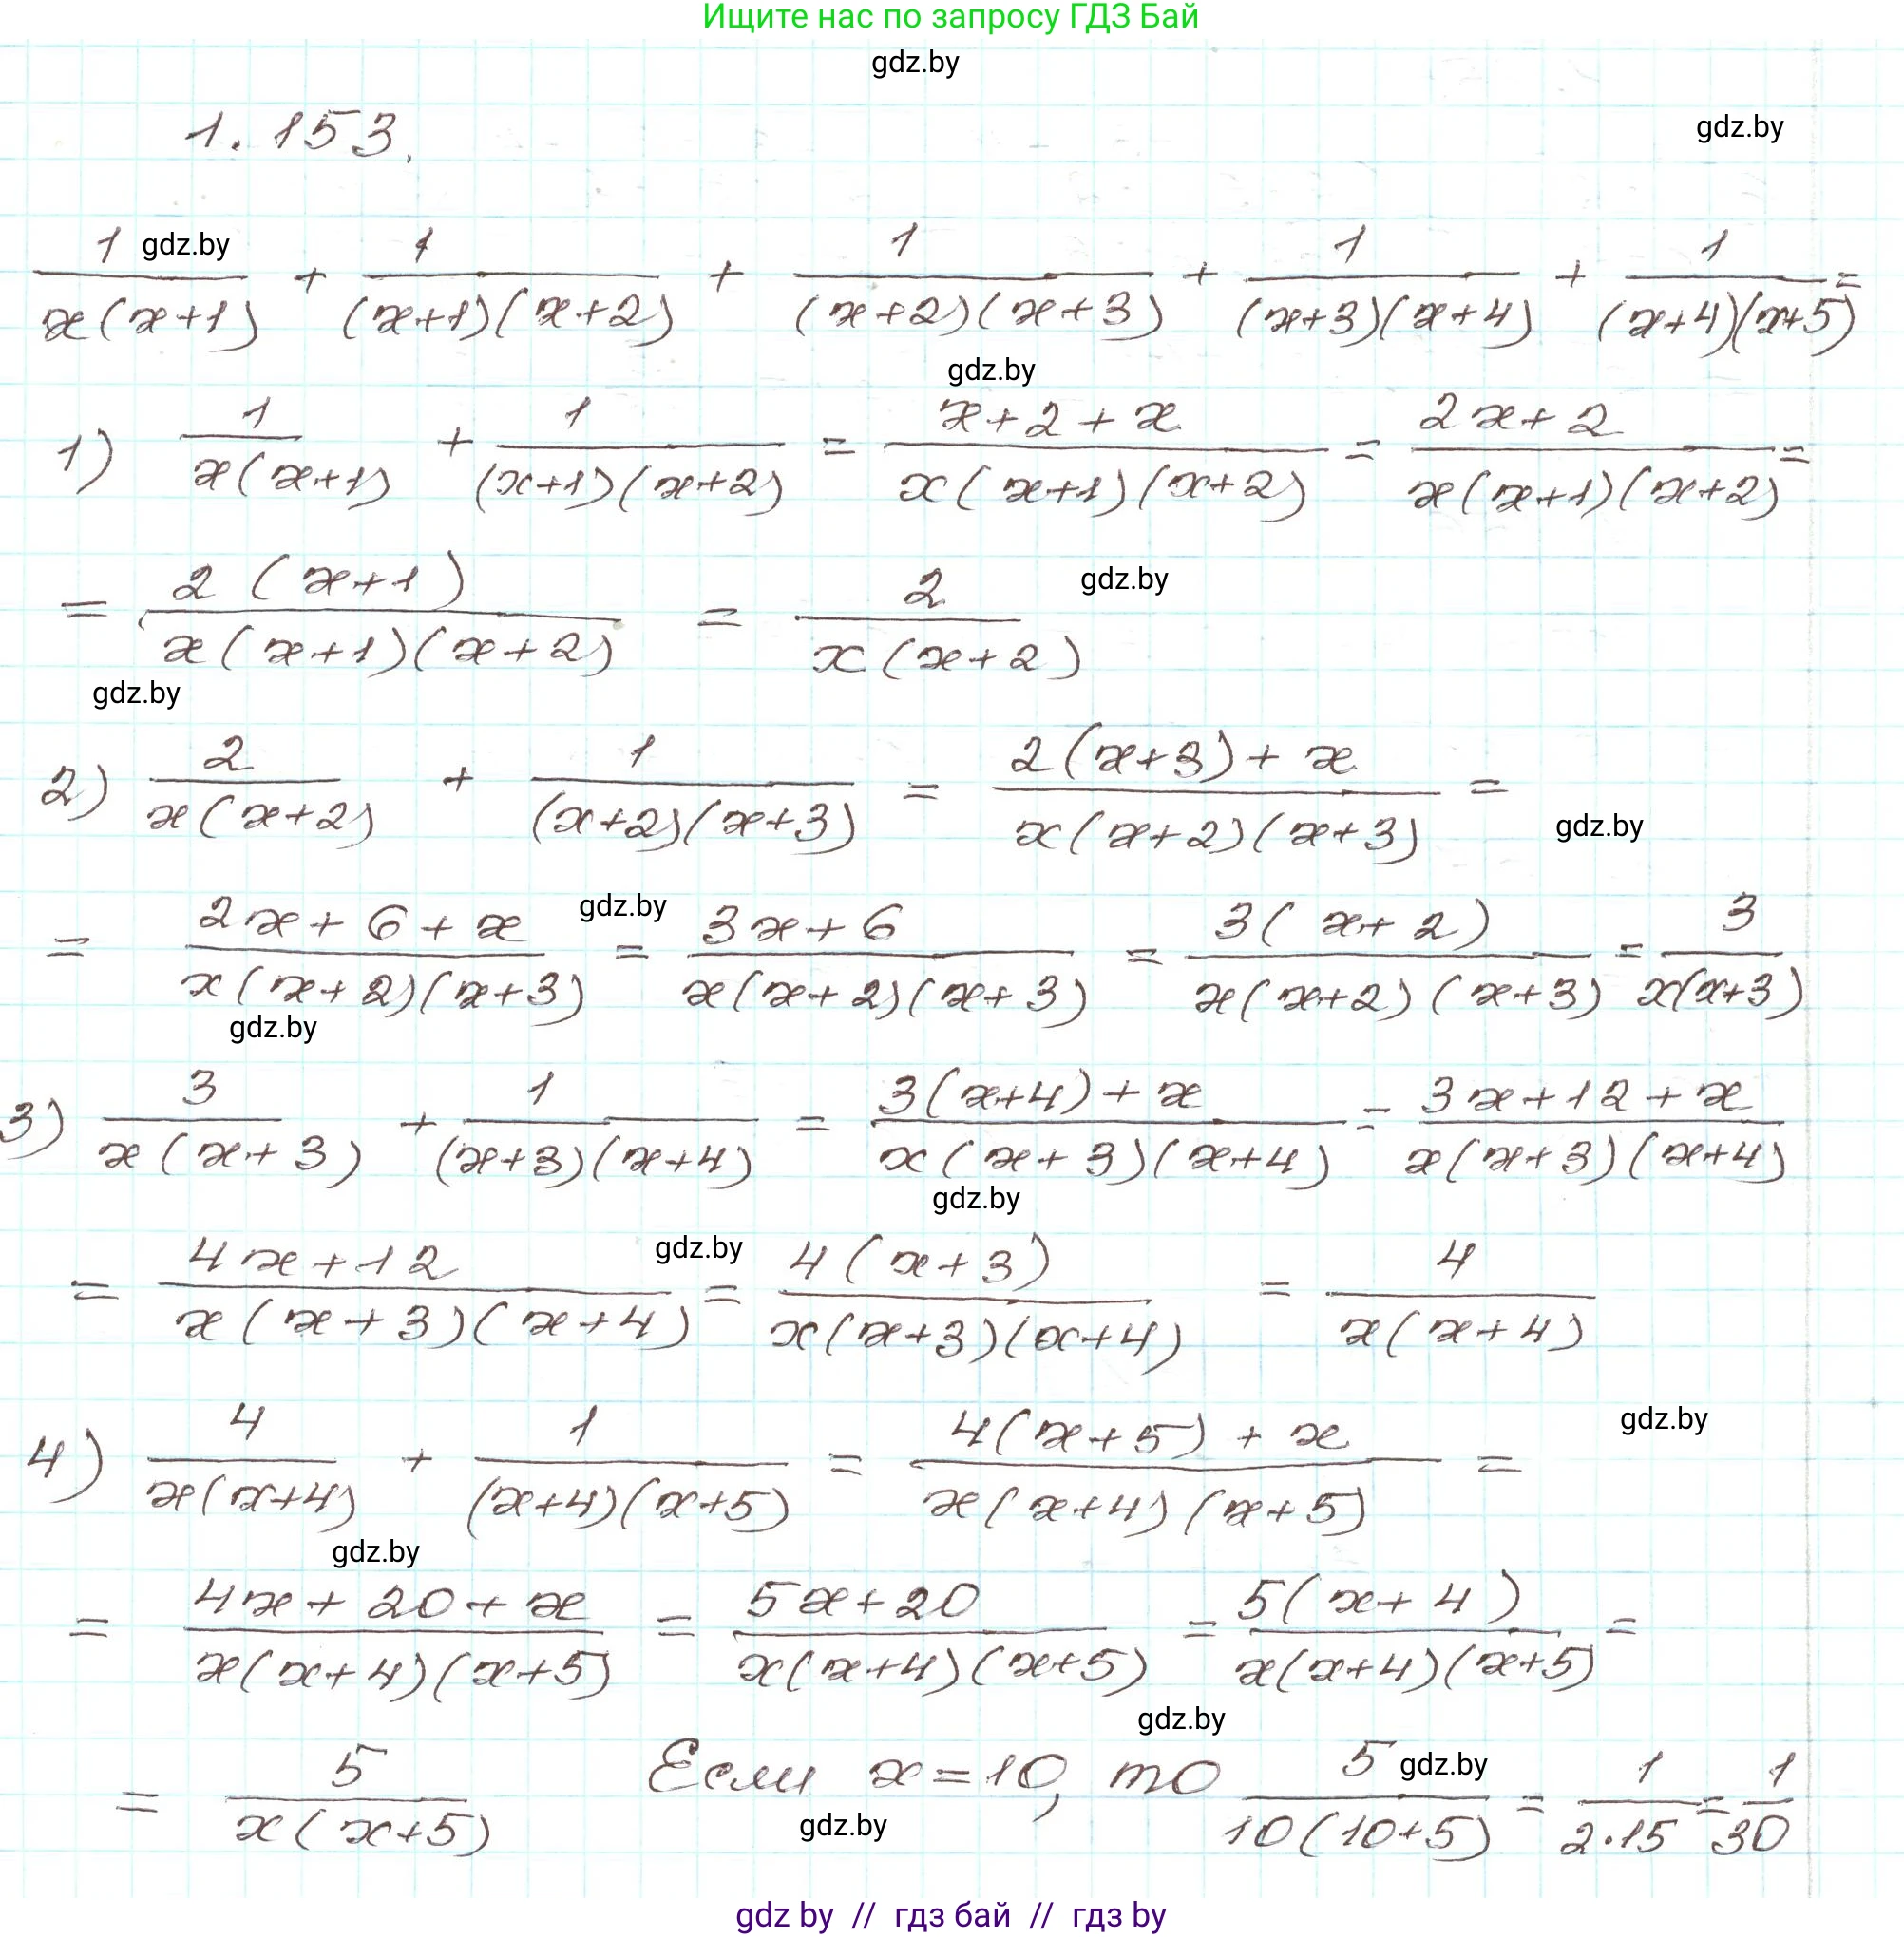 Ищите нас по запросу ГДЗ Бай
gdz.by
1.153.
gdz.by
1/(x(x+1)) + 1/((x+1)(x+2)) + 1/((x+2)(x+3)) + 1/((x+3)(x+4)) + 1/((x+4)(x+5)) =
gdz.by
gdz.by
1) 1/(x(x+1)) + 1/((x+1)(x+2)) = (x+2+x)/(x(x+1)(x+2)) = (2x+2)/(x(x+1)(x+2)) =
= (2(x+1))/(x(x+1)(x+2)) = 2/(x(x+2))
gdz.by
gdz.by
2) 2/(x(x+2)) + 1/((x+2)(x+3)) = (2(x+3)+x)/(x(x+2)(x+3)) =
gdz.by
= (2x+6+x)/(x(x+2)(x+3)) = (3x+6)/(x(x+2)(x+3)) = (3(x+2))/(x(x+2)(x+3)) = 3/(x(x+3))
gdz.by
gdz.by
3) 3/(x(x+3)) + 1/((x+3)(x+4)) = (3(x+4)+x)/(x(x+3)(x+4)) = (3x+12+x)/(x(x+3)(x+4))
gdz.by
= (4x+12)/(x(x+3)(x+4)) = (4(x+3))/(x(x+3)(x+4)) = 4/(x(x+4))
gdz.by
4) 4/(x(x+4)) + 1/((x+4)(x+5)) = (4(x+5)+x)/(x(x+4)(x+5)) =
gdz.by
gdz.by
= (4x+20+x)/(x(x+4)(x+5)) = (5x+20)/(x(x+4)(x+5)) = (5(x+4))/(x(x+4)(x+5)) =
gdz.by
= 5/(x(x+5)) Если x=10, то 5/(10(10+5)) = 1/(2·15) = 1/30
gdz.by
gdz.by
gdz by // гдз бай // гдз by